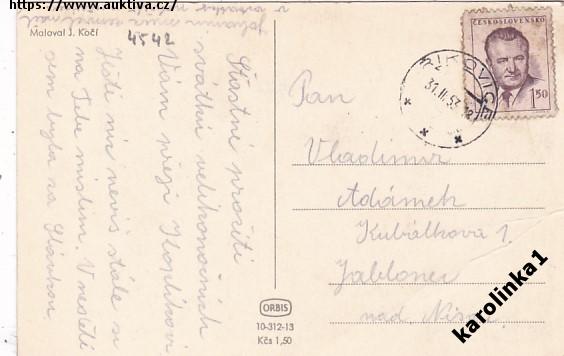 https://www.auktiva.cz/
Maloval J. Kočí
4542
Šťastné prožití
svátků velikonočních
Vám přejí
Ještě nic nevíš stále si
na Tebe myslím. V neděli
jsem byla za
ČESKOSLOVENSKO
1.50
ŘIKOVICE
Pan
Vladimír
Adámek
Kubálkova 1
Jablonec
nad Nisou
ORBIS
10-312-13
Kčs 1,50
karolinka1